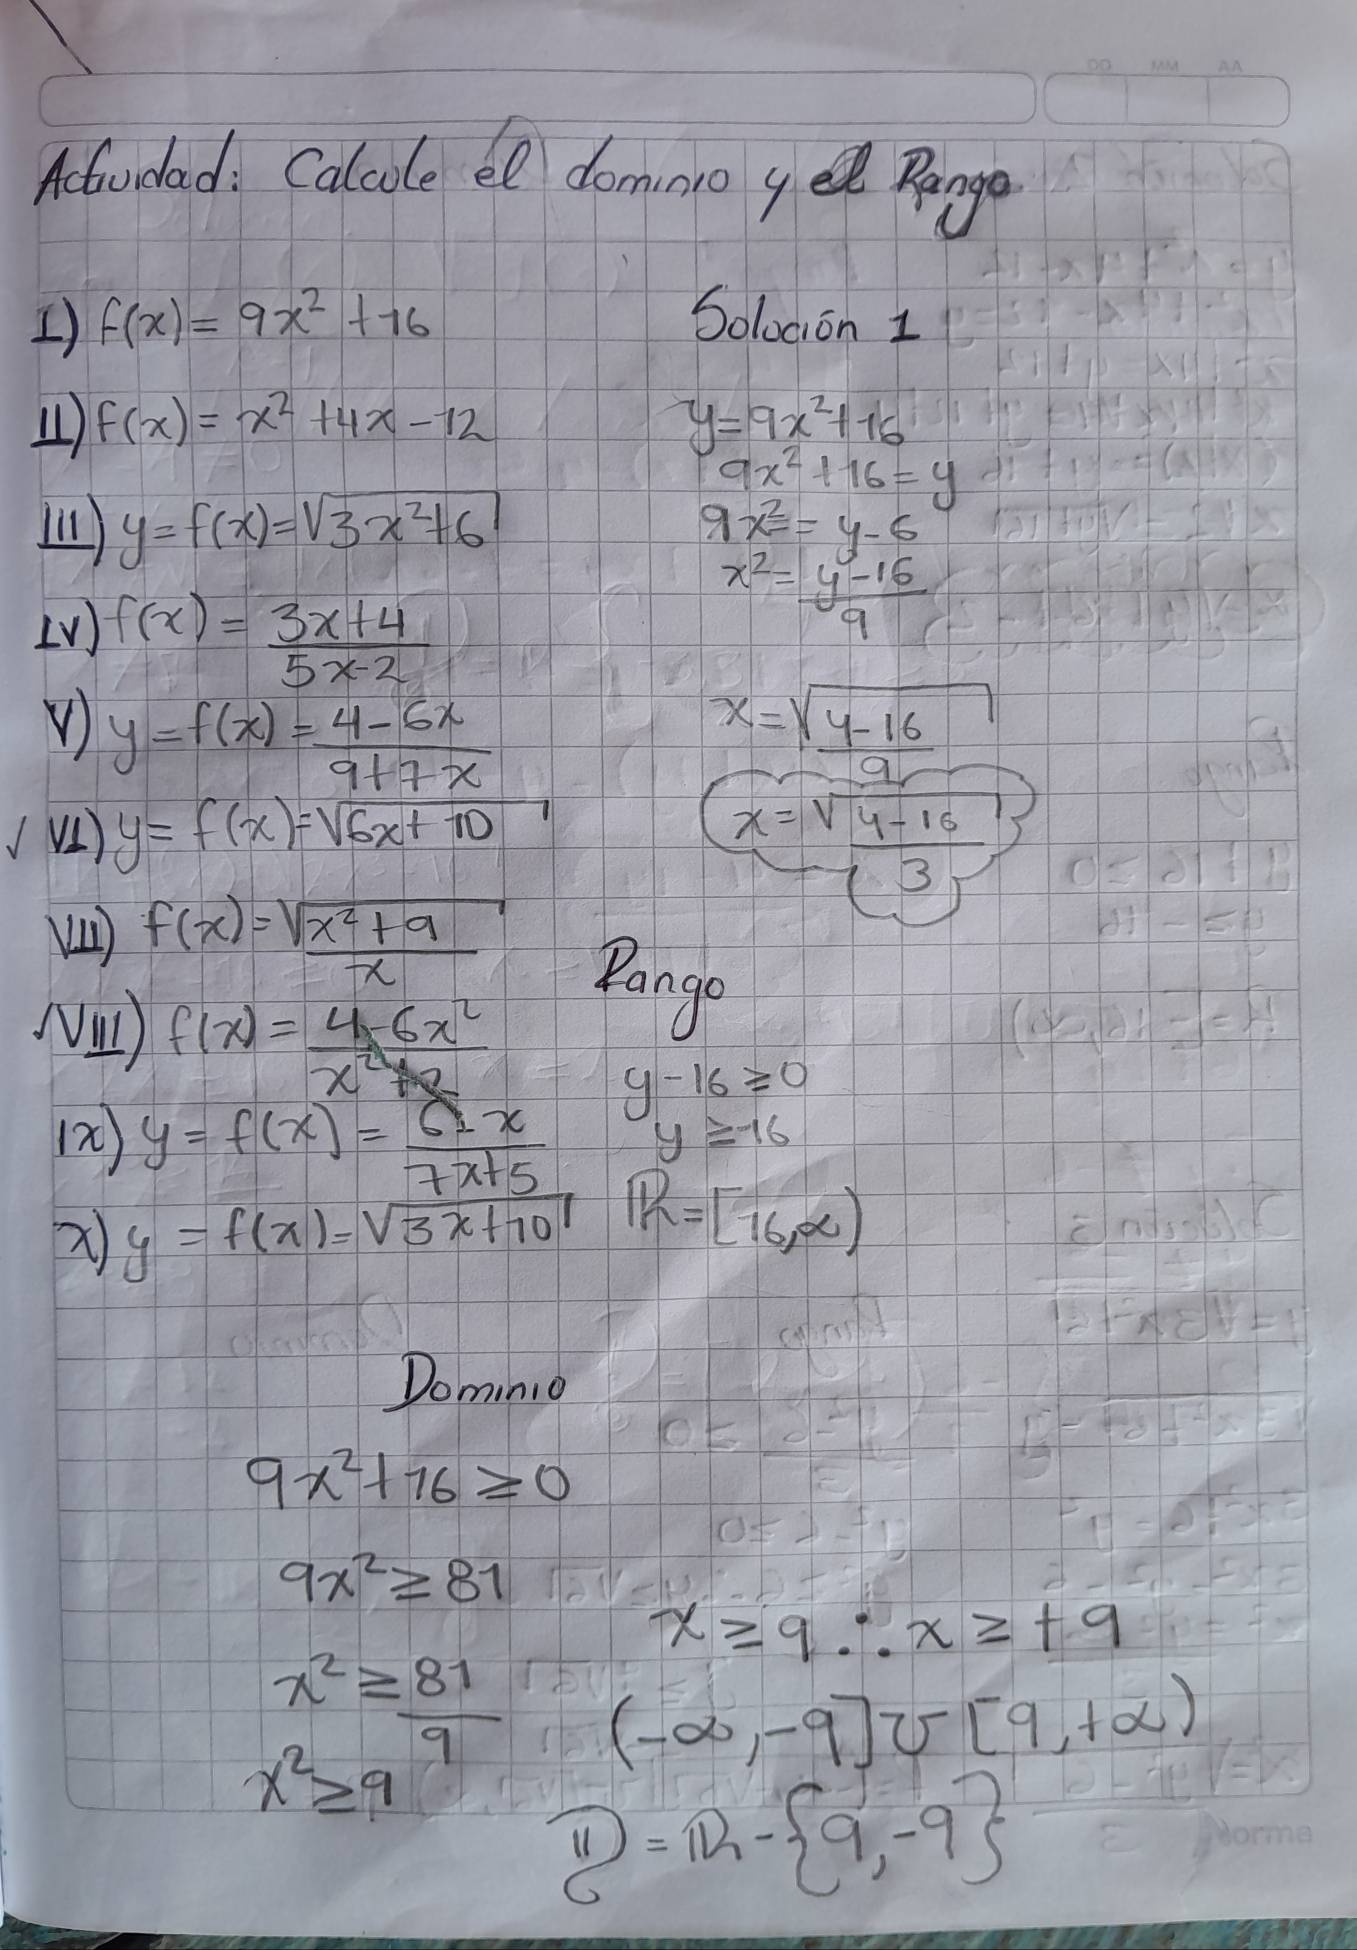 DD MM AA
Actividad: Calcule el dominio y el Rango
I) f(x) = 9x² + 16
II) f(x) = x² + 4x - 12
III) y = f(x) = √3x² + 6
IV) f(x) = 3x + 4 / 5x - 2
V) y = f(x) = 4 - 6x / 9 + 7x
✓ VI) y = f(x) = √6x + 10
VII) f(x) = √x² + 9 / x
✓ VIII) f(x) = 4 - 6x² / x² + 2
IX) y = f(x) = 6 - x / 7x + 5
X) y = f(x) = √3x + 10
Solución 1
y = 9x² + 16
9x² + 16 = y
9x² = y - 6
x² = y - 16 / 9
x = √y - 16 / 9
x = √y - 16 / 3
Rango
y - 16 ≥ 0
y ≥ 16
R = [16, ∞)
Dominio
9x² + 16 ≥ 0
9x² ≥ 81
x² ≥ 81 / 9
x² ≥ 9
x ≥ 9 ∴ x ≥ + 9
(-∞, -9] ∪ [9, +∞)
D = R - {9, -9}